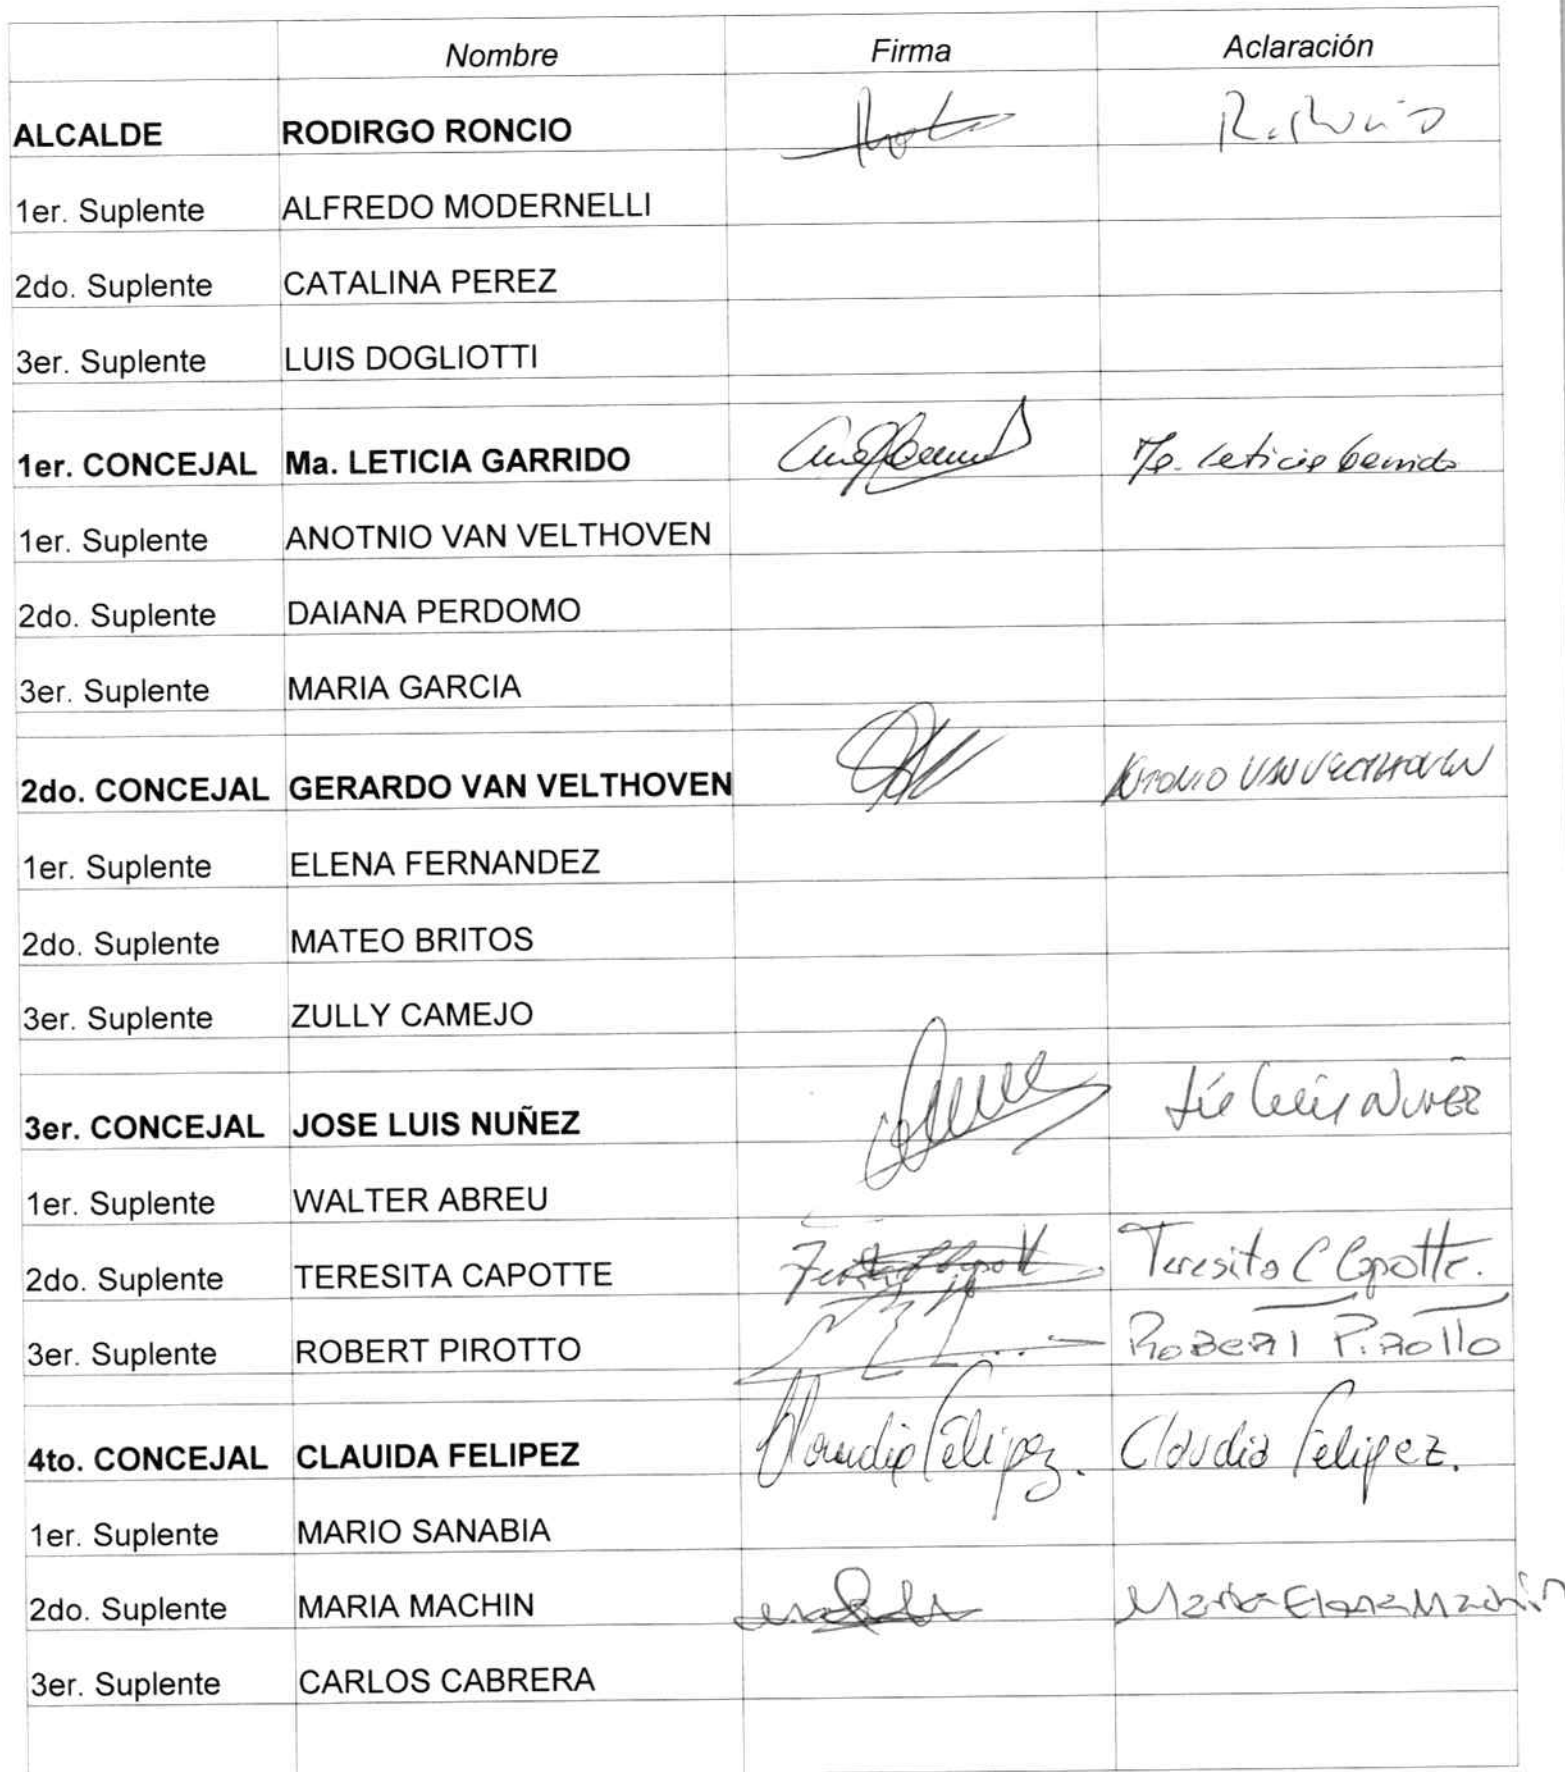 Nombre Firma Aclaración
ALCALDE RODIRGO RONCIO R. Roncio
1er. Suplente ALFREDO MODERNELLI
2do. Suplente CATALINA PEREZ
3er. Suplente LUIS DOGLIOTTI
1er. CONCEJAL Ma. LETICIA GARRIDO Ma. Leticia Garrido
1er. Suplente ANOTNIO VAN VELTHOVEN
2do. Suplente DAIANA PERDOMO
3er. Suplente MARIA GARCIA
2do. CONCEJAL GERARDO VAN VELTHOVEN ANTONIO VAN VELTHOVEN
1er. Suplente ELENA FERNANDEZ
2do. Suplente MATEO BRITOS
3er. Suplente ZULLY CAMEJO
3er. CONCEJAL JOSE LUIS NUÑEZ José Luis Nuñez
1er. Suplente WALTER ABREU
2do. Suplente TERESITA CAPOTTE Teresita C Capotte.
3er. Suplente ROBERT PIROTTO ROBERT PIROTTO
4to. CONCEJAL CLAUIDA FELIPEZ Claudia Felipez. Claudia Felipez.
1er. Suplente MARIO SANABIA
2do. Suplente MARIA MACHIN Maria Elena Machin
3er. Suplente CARLOS CABRERA